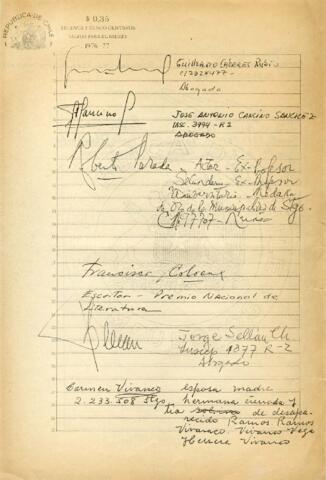 REPUBLICA DE CHILE
$ 0,35
TREINTA Y CINCO CENTAVOS
VALIDO PARA EL BIENIO
1976-77
GUILLERMO CACERES RUBIO
Abogado
JOSE ANTONIO CANCINO SANCHEZ
INSC. 3994-R2
ABOGADO
Roberto Parada Actor - Ex-Profesor
Ex-Profesor
Universitario - Medalla
de Oro de la Municipalidad de Stgo.
Francisco Coloane
Escritor - Premio Nacional de
Literatura
Jorge Sellan Ch
Inscrip 1877 R-2
Abogado
Carmen Vivanco esposa madre
2.233.508 Stgo hermana cuñada y
tia de desapa-
recido Ramos Ramos
Vivanco. Vivanco Vega
Herrera Vivanco